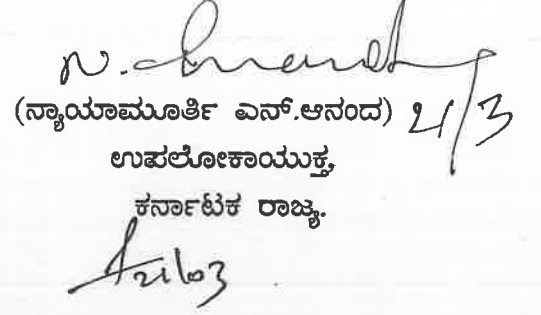 N. Anand
(ನ್ಯಾಯಾಮೂರ್ತಿ ಎನ್.ಆನಂದ) 21/3
ಉಪಲೋಕಾಯುಕ್ತ,
ಕರ್ನಾಟಕ ರಾಜ್ಯ.